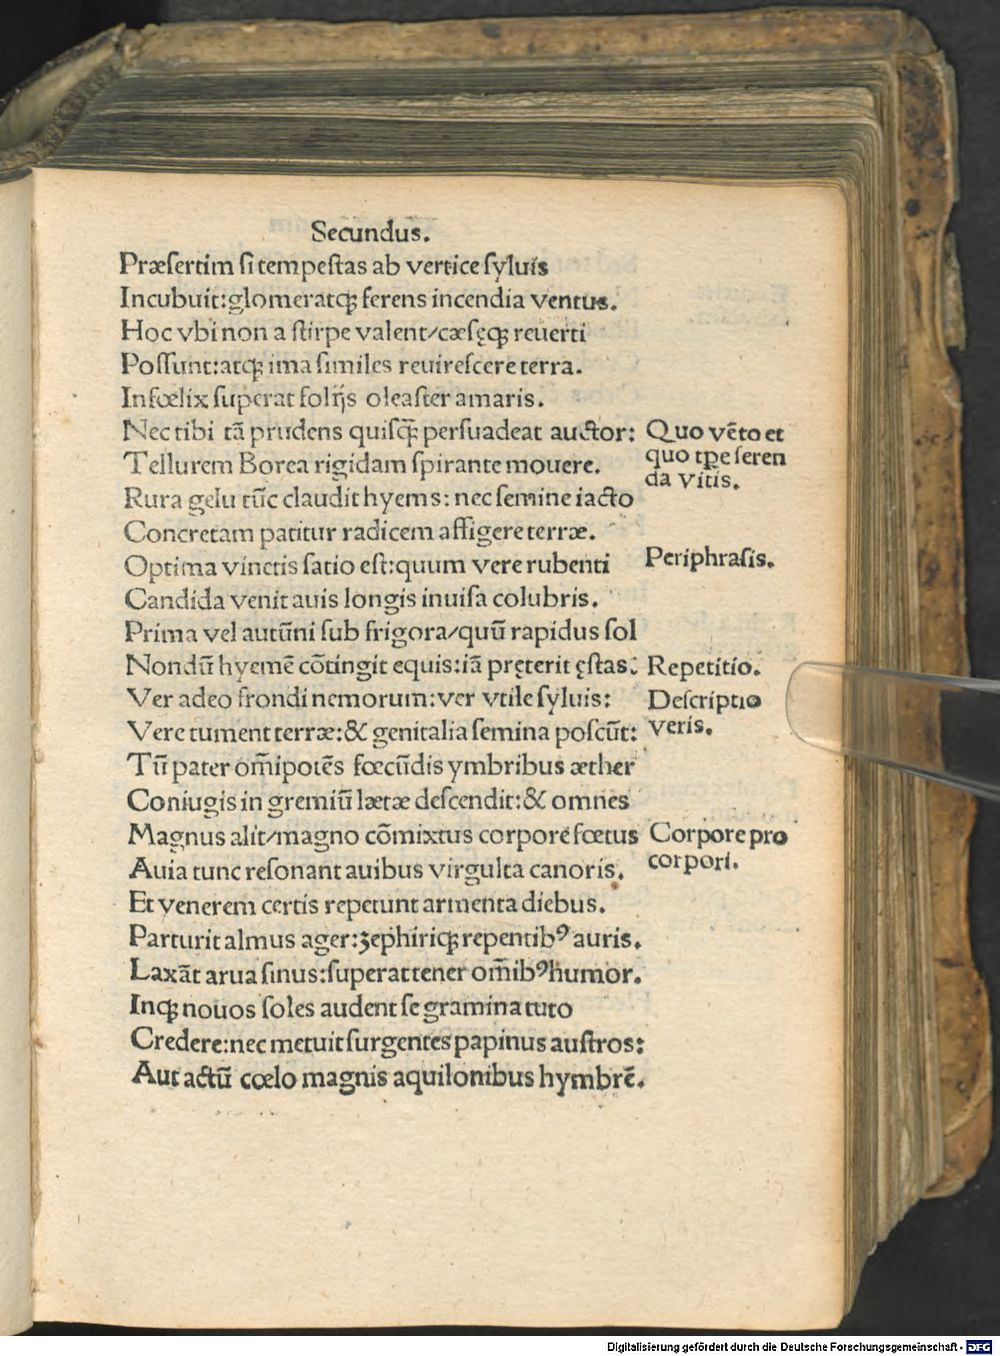 Secundus.
Præſertim ſi tempeſtas ab vertice ſyluis
Incubuit:glomeratqꝫ ferens incendia ventus.
Hoc vbi non a ſtirpe valent/cæſęqꝫ reuerti
Poſſunt:atqꝫ ima ſimiles reuireſcere terra.
Infœlix ſuperat folijs oleaſter amaris.
Nec tibi tã prudens quiſqꝫ perſuadeat auctor:
Tellurem Borea rigidam ſpirante mouere.
Rura gelu tũc claudit hyems: nec ſemine iacto
Concretam patitur radicem affigere terræ.
Optima vinetis ſatio eſt:quum vere rubenti
Candida venit auis longis inuiſa colubris.
Prima vel autũni ſub frigora/quũ rapidus ſol
Nondũ hyemẽ cõtingit equis:iã pręterit ęſtas:
Ver adeo frondi nemorum:ver vtile ſyluis:
Vere tument terræ:& genitalia ſemina poſcũt:
Tũ pater om̃ipotẽs fœcũdis ymbribus æther
Coniugis in gremiũ lætæ deſcendit:& omnes
Magnus alit/magno cõmixtus corpore fœtus
Auia tunc reſonant auibus virgulta canoris.
Et venerem certis repetunt armenta diebus.
Parturit almus ager:ꝫephiriqꝫ repentibꝰ auris.
Laxãt arua ſinus:ſuperat tener om̃ibꝰ humor.
Inqꝫ nouos ſoles audent ſe gramina tuto
Credere:nec metuit ſurgentes papinus auſtros:
Aut actũ cœlo magnis aquilonibus hymbrẽ.
Quo vẽto et
quo tꝑe ſeren
da vitis.
Periphraſis.
Repetitio.
Deſcriptio
veris.
Corpore pro
corpori.
Digitalisierung gefördert durch die Deutsche Forschungsgemeinschaft - DFG